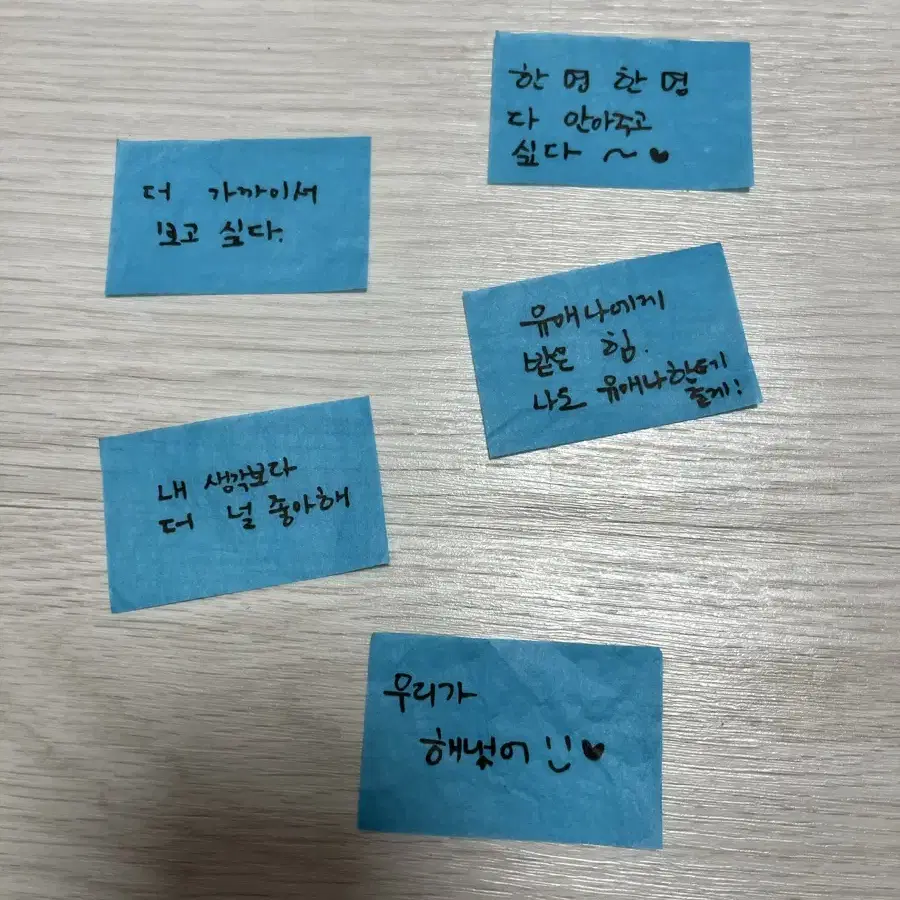 한 명 한 명
다 안아주고
싶다 ~ ♥
더 가까이서
보고 싶다.
유애나에게
받은 힘.
나도 유애나한테
줄게!
내 생각보다
더 널 좋아해
우리가
해냈어 !! ♥